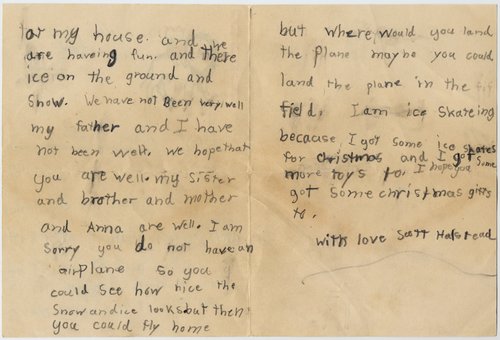 for my house. and we
are haveing fun. and there
ice on the ground and
snow. We have not Been very well
my father and I have
not been well. we hope that
you are well. my sister
and brother and mother
and Anna are well. I am
sorry you do not have an
airplane so you
could see how nice the
snow and ice looks but then
you could fly home
but where would you land
the plane maybe you could
land the plane in the
field. I am ice skateing
because I got some ice skates
for christmas and I got some
more toys to. I hope you
got some christmas gifts
to.
with love Scott Halstead